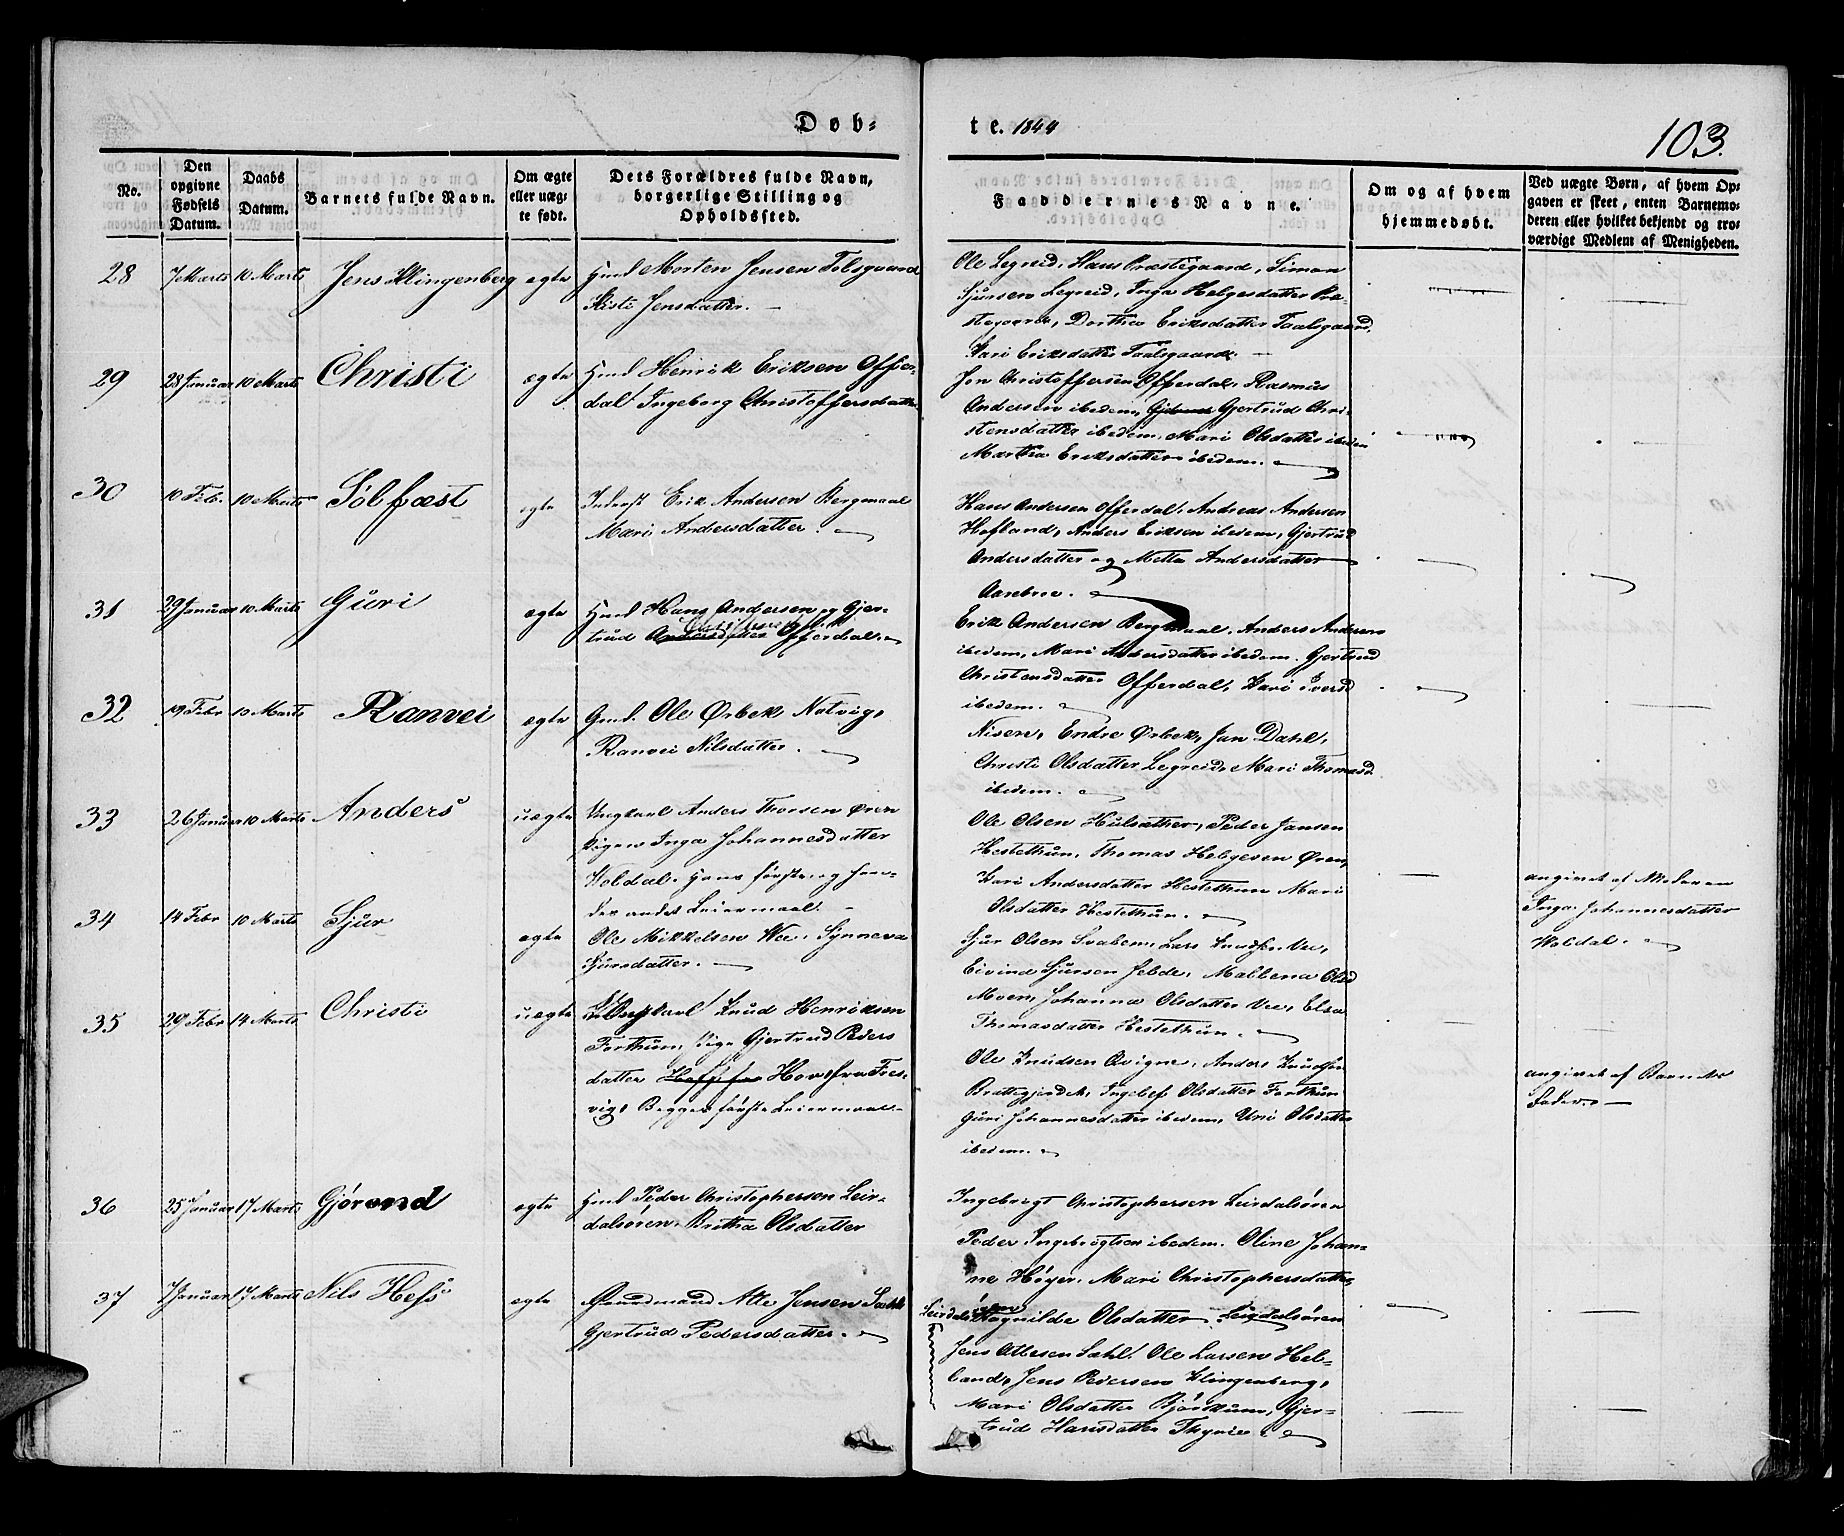 Døb-
te. 1844
103.
No.
Den opgivne Fødsels Datum.
Daabs Datum.
Barnets fulde Navn.
Om ægte eller uægte født.
Dets Forældres fulde Navn, borgerlige Stilling og Opholdssted.
Faddernes Navne.
Om og af hvem hjemmedøbt.
Ved uægte Børn, af hvem Opgaven er skeet, enten Barnemoderen eller hvilket bekjendt og troværdigt Medlem af Menigheden.
28 7 Marts 10 Marts Jens Klingenberg ægte
Hmd Morten Jensen
Kisti Jensdatter.
Ole Legreid, Hans Præstegaard, Simon
Sjursen Legreid, Inga Helgesdatter Præ-
stegaard, Dorthea Eriksdatter
Kari Eriksdatter
29 28 Januar 10 Marts Christi ægte
Hmd Henrik Eriksen Offer-
dal Ingeborg Christoffersdatter
Jon Christoffersen Offerdal, Rasmus
Andersen ibedem, Gjertrud Chri-
stensdatter ibedem, Mari Olsdatter ibedem
Martha Eriksdatter ibedem.
30 10 Feb. 10 Marts Sølfæst ægte
Inderst Erik Andersen Bergmaal
Mari Andersdatter.
Hans Andersen Offerdal, Andreas Andersen
Hofland, Anders Eriksen ibedem, Gjertrud
Andersdatter og Metta Andersdatter
Aarebroe.
31 29 Januar 10 Marts Guri ægte
Hmd Hans Andersen og Gjer-
trud Offerdal.
Erik Andersen Bergmaal, Anders Andersen
ibedem, Mari Andersdatter ibedem. Gjertrud
Christensdatter Offerdal, Kari Iversd
ibedem.
32 19 Febr 10 Marts Ranvei ægte
Gmd. Ole Ørbek Natvig,
Ranvei Nilsdatter.
Nisen, Endre Ørbek, Jan Dahl,
Christi Olsdatter Legreid, Mari Thomasd.
ibedem.
33 26 Januar 10 Marts Anders uægte
Ungkarl Anders Thorsen Øren
Pigen Inga Johannesdatter
Woldal. Hans første og hen-
des andet Leiermaal.
Ole Olsen Hulsæther, Peder Jansen
Hestethun, Thomas Helgesen Øren,
Kari Andersdatter Hestethun Mari
Olsdatter Hestethun.
angivet af Moderen
Inga Johannesdatter
Woldal.
34 14 Febr 10 Marts Sjur ægte
Ole Mikkelsen Wee, Synneva
Sjursdatter.
Sjur Olsen Svaben, Lars Vee,
Eivind Sjursen Jelde, Mallena Olsd
Moen, Johanna Olsdatter Vee, Elsa
Thomasdatter Hestethun.
35 29 Febr 14 Marts Christi uægte
Ungkarl Knud Henriksen
Forthun, Pige Gjertrud Peders
datter Hov fra Fres-
vig, Begges første Leiermaal.
Ole Knudsen Qvigne, Anders Knudsen
Brattegjerdet, Ingelef Olsdatter Forthun
Guri Johannesdatter ibedem, Uni Olsdatter
ibedem.
angivet af Barnets
Fader.
36 25 Januar 17 Marts Gjørond ægte
Hmd Peder Christophersen Leir-
dalsøren, Britha Olsdatter
Ingebrigt Christophersen Leirdalsøren
Peder Ingebrigtsen ibedem. Oline Johan-
ne Høyer, Mari Christophersdatter
Ragnilde Olsdatter Leirdalsøren
37 7 Januar 17 Marts Nils Hess ægte
Gaardmand Atle Jensen Sæhl
Gjertrud Pedersdatter.
Jens Atlesen Sæhl. Ole Larsen Hel-
land, Jens Pedersen Klingenberg,
Mari Olsdatter Bjørkum, Gjer-
trud Hansdatter